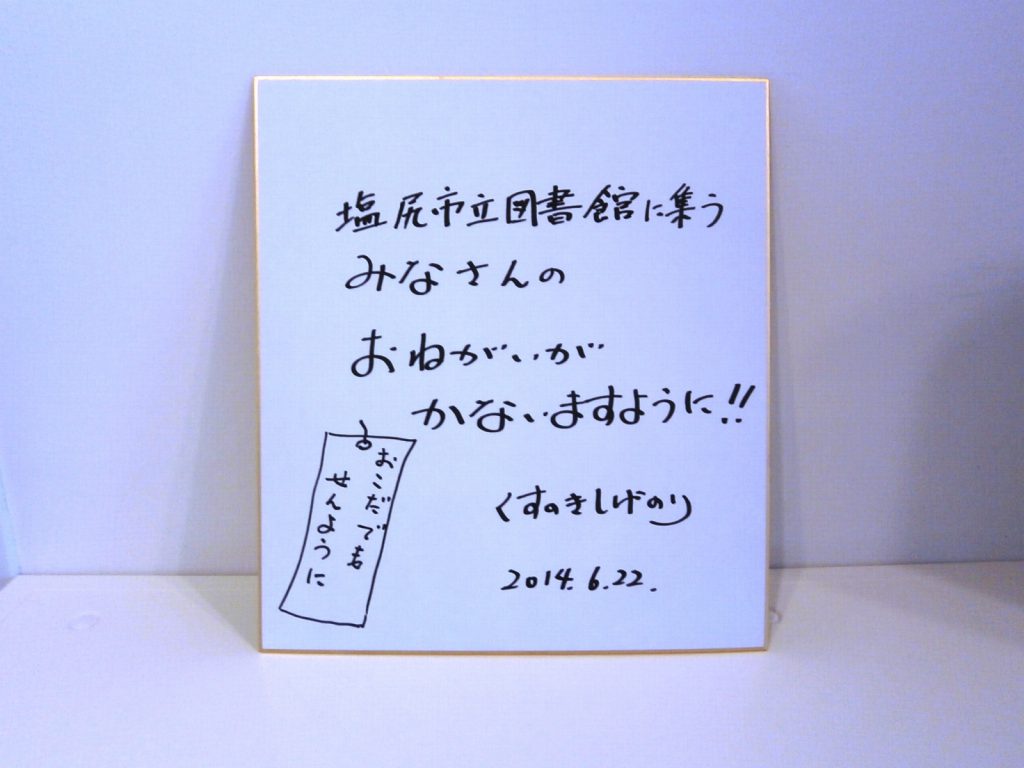 塩尻市立図書館に集う
みなさんの
おねがいが
かないますように!!
おこだでま
せんように
くすのきしげのり
2014.6.22.